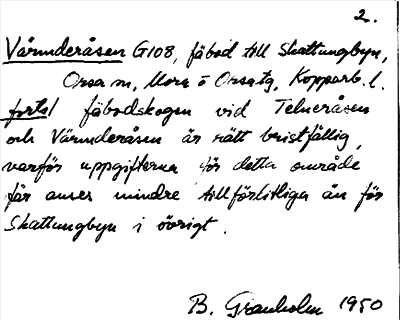 2.
Värnderåsen G108, fäbod till Skattungbyn,
Orsa sn, Mora o Orsa tg, Kopparb. l.
forts/ fäbodskogen vid Telneråsen
och Värnderåsen är rätt bristfällig,
varför uppgifterna för detta område
får anses mindre tillförlitliga än för
Skattungbyn i övrigt.
B. Granholm 1950